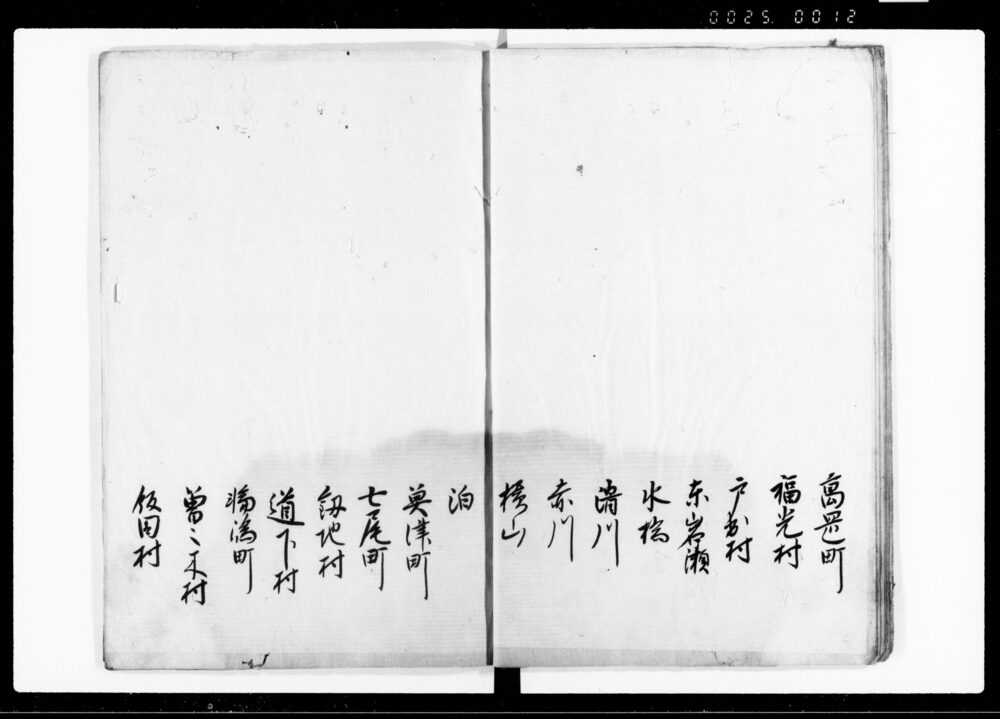 0025. 0012
高岡町
福光村
戸出村
东岩瀬
水橋
滑川
赤川
横山
泊
莫津町
七尾町
劔地村
道下村
輪嶋町
曽々木村
飯田村